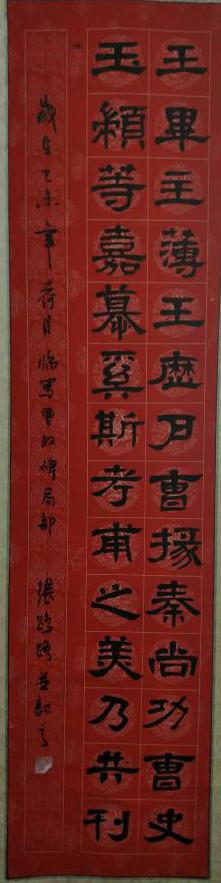 王畢主薄王歴戶曹掾秦尚功曹史
王顓等嘉慕奚斯考甫之美乃共刊
歲在乙未年荷月臨寫曹全碑局部 張路路並記之